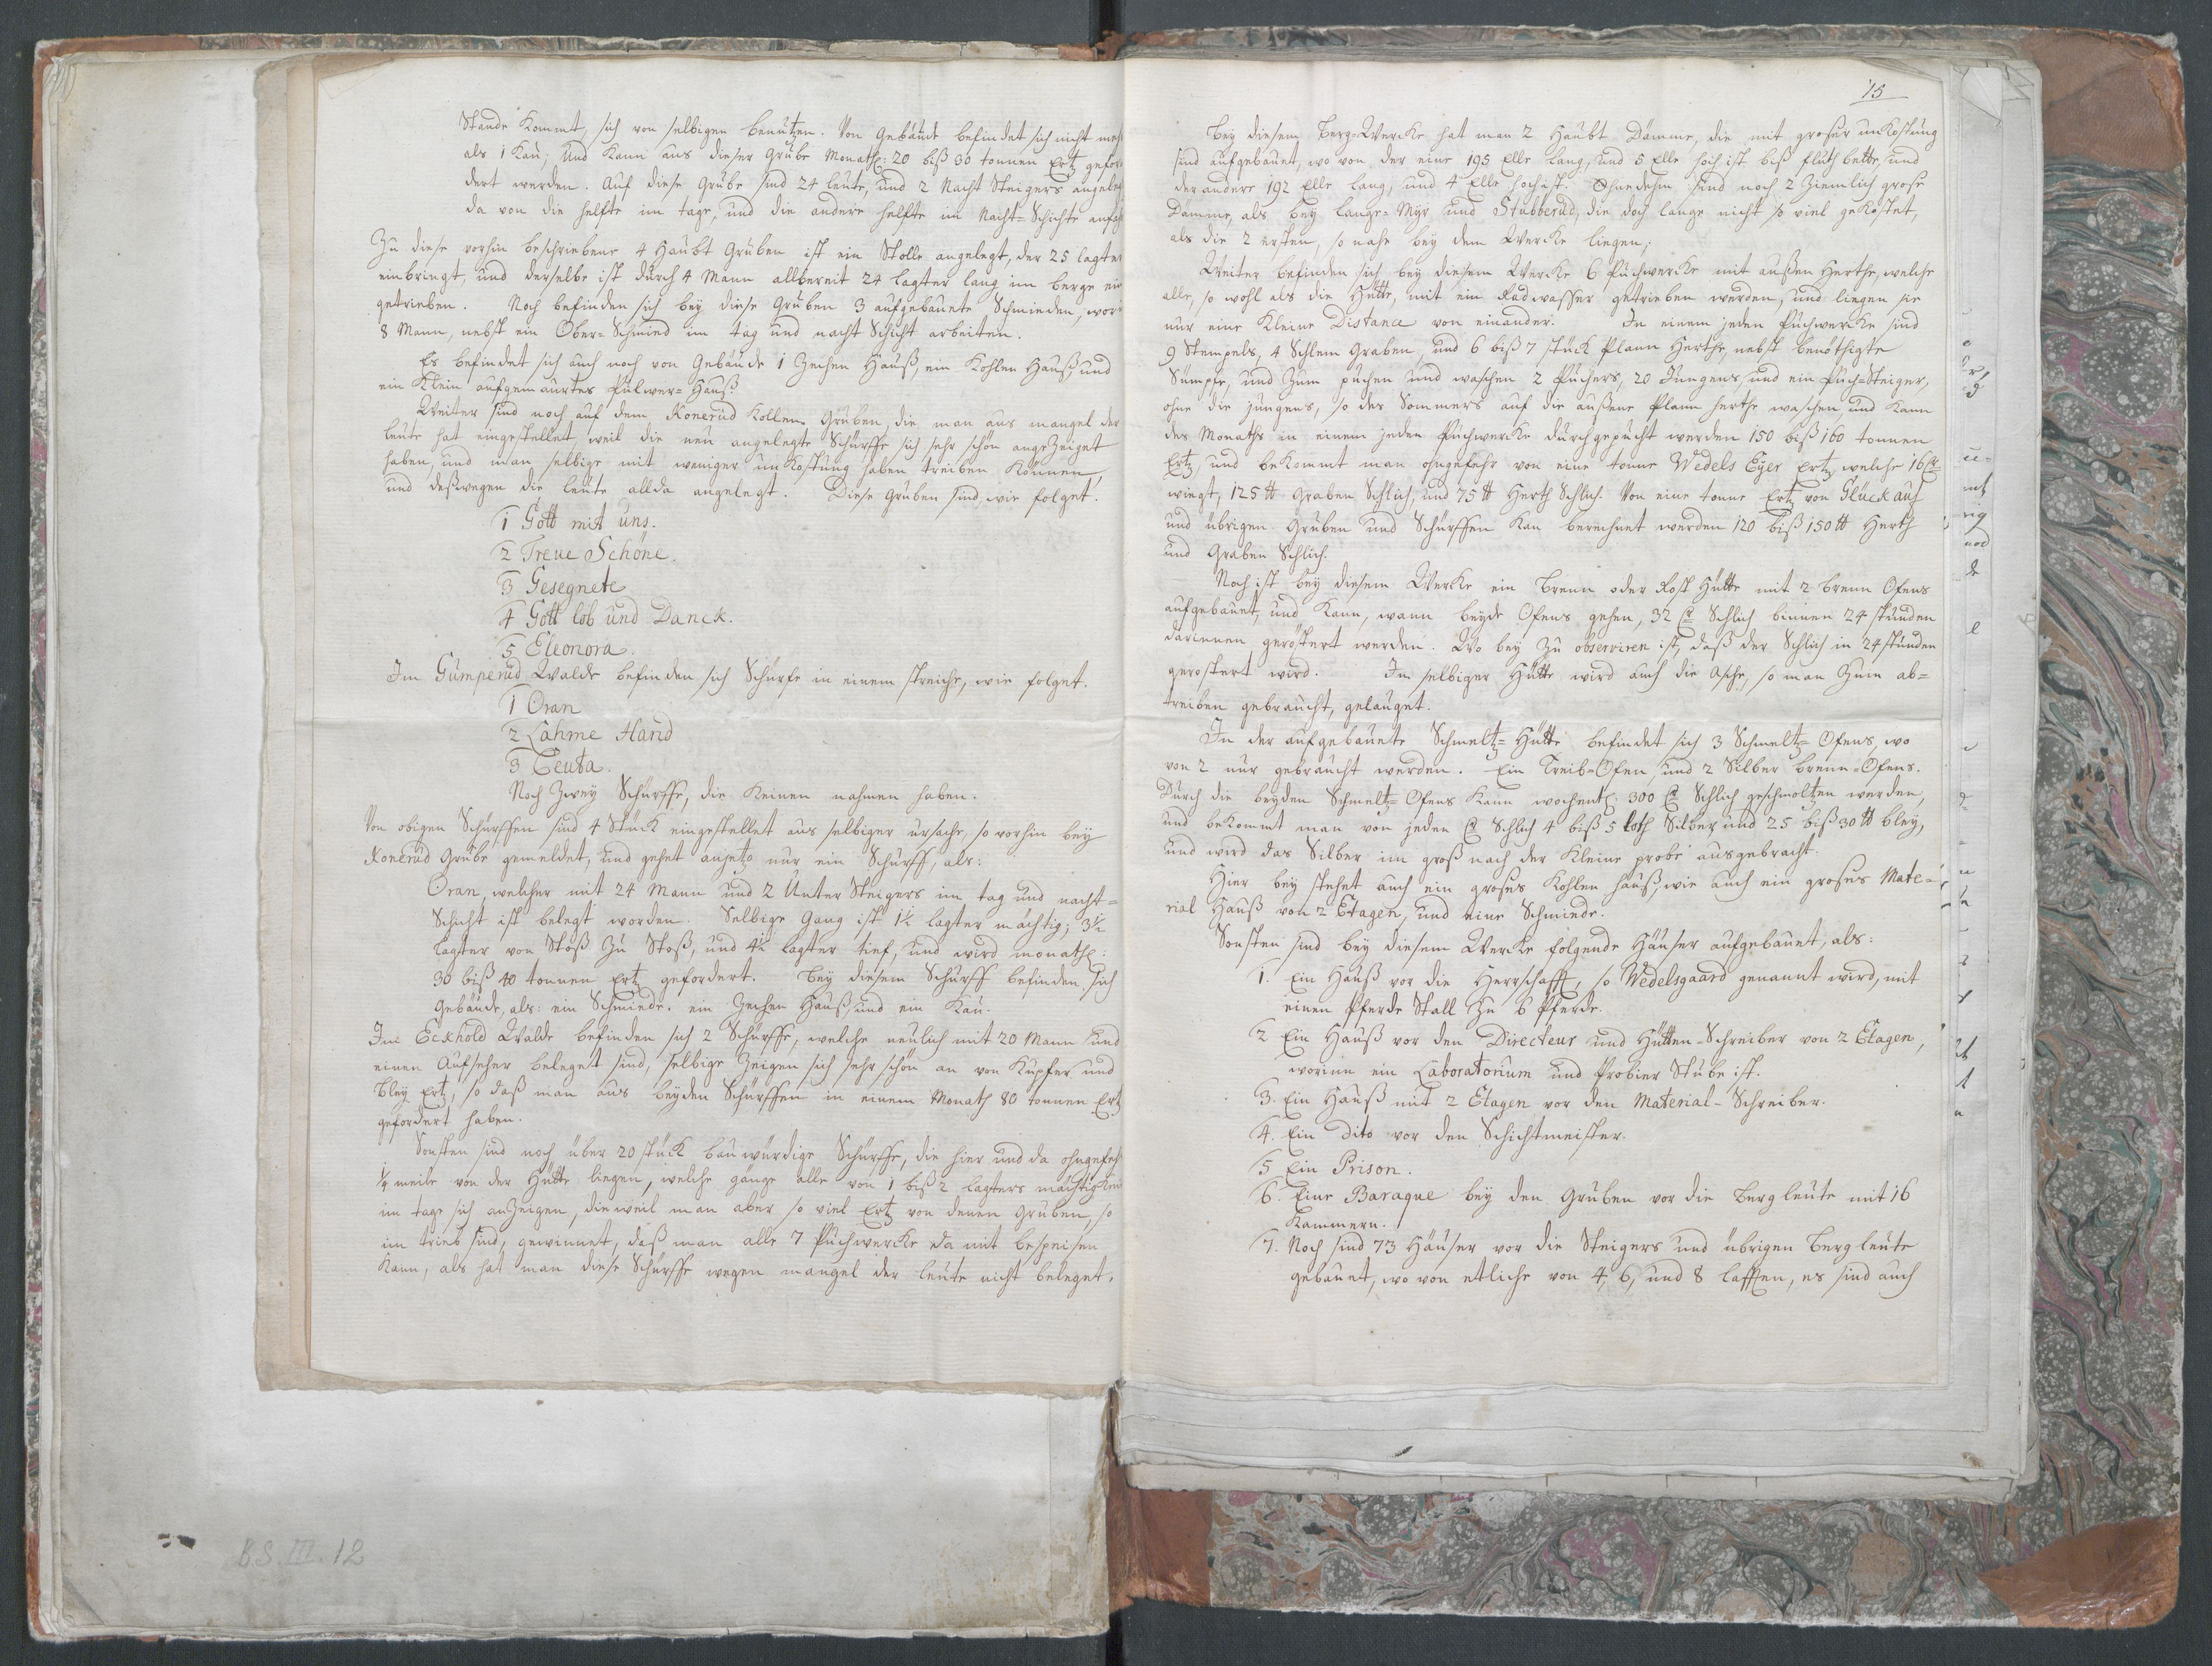 Stande Kommt, sich von selbigen benutzen. Von Gebäude befindet sich nicht meh
als 1 Kau; Und kann aus dieser Grube Monathl: 20 biß 30 tonnen Ertz gefor
dert werden. Auf diese Grube sind 24 leute, und 2 Nacht Steigers angeleg
da von die helfte im tage, und die andere helfte im Nacht-Schichte anfah
Zu diese vorhin beschriebene 4 Haubt Gruben ist ein Stolle angelegt, der 25 lagter
einbringt, und derselbe ist durch 4 Mann allbereit 24 lagter lang im berge ein
getrieben. Noch befinden sich bey diese Gruben 3 aufgebauete Schmieden, wor
8 Mann, nebst ein Ober-Schmied im tag und nacht Schicht arbeiten.
Es befindet sich auch noch von Gebäude 1 Zechen Hauß, ein Kohlen Hauß, und
ein Klein aufgemaurtes Pulwer-Hauß.
Weiter sind noch auf dem Konerud Kollen Gruben, die man aus mangel der
leute hat eingestellet, weil die neu angelegte Schürffe sich sehr schön angezeiget
haben, und man selbige mit weniger unkostung haben treiben können,
und deßwegen die leute allda angelegt. Diese Gruben sind, wie folget.
1 Gott mit uns.
2 Treue Schöne.
3 Gesegnete
4 Gott lob und Danck.
5 Eleonora.
Im Gumperud Walde befinden sich Schürfe in einem streiche, wie folget.
1 Oran
2 Lahme Hand
3 Ceuta.
Noch Zwey Schürffe, die Keinen nahmen haben.
Von obigen Schürffen sind 4 Stück eingestellet aus selbiger ursache, so vorhin bey
Konerud Grube gemeldet, und gehet anjeto nur ein Schurff, als:
Oran, welcher mit 24 Mann und 2 Unter Steigers im tag und nacht-
Schicht ist belegt worden. Selbige Gang ist 1½ lagter mächtig; 3½
lagter von Stoß zu Stoß, und 4½ lagter tief, und wird monathl:
30 biß 40 tonnen Ertz gefordert. Bey diesem Schurff befinden sich
Gebäude, als: ein Schmiede. ein Zechen Hauß, und ein Kau.
Im Eckhold Walde befinden sich 2 Schürffe, welche neulich mit 20 Mann und
einen Aufseher beleget sind, selbige Zeigen sich sehr schön an von Kupfer und
Bley Ertz, so daß man aus beyden Schürffen in einem Monath 80 tonnen Ertz
gefordert haben.
Sonsten sind noch über 20 stück bauwürdige Schürffe, die hier und da ohngefeh
¼ meile von der Hütte liegen, welche gänge alle von 1 biß 2 lagters mächtigkeit
im tage sich anzeigen, dieweil man aber so viel Ertz von denen Gruben, so
im trieb sind, gewinnet, daß man alle 7 Puchwercke da mit bespeisen
Kann, als hat man diese Schürffe wegen mangel der leute nicht beleget.
B.S. III. 12
15
Bey diesem Berg-Wercke hat man 2 Haubt Dämme, die mit großer unkostung
sind aufgebauet, wo von der eine 195 Elle lang, und 5 Elle hoch ist biß fluth bette, und
der andere 192 Elle lang, und 4 Elle hoch ist. Ohnedehm sind noch 2 Ziemlich große
Dämme, als bey Lange-Myr und Stubberud, die doch lange nicht so viel gekostet,
als die 2 ersten, so nahe bey dem Wercke liegen.
Weiter befinden sich bey diesem Wercke 6 Puchwercke mit außen Herthe, welche
alle, so wohl als die Hütte, mit ein Radwasser getrieben werden, und liegen sie
nur eine Kleine Distance von einander. In einem jeden Puchwercke sind
9 Stempels, 4 Schlem Graben, und 6 biß 7 stück Plann Herthe, nebst benöthigte
Sümpfe, und Zum puchen und waschen 2 Puchers, 20 Jungens, und ein Puch-Steiger,
ohne die jungens, so des Sommers auf die außene Plann herthe waschen, und Kann
des Monaths in einem jeden Puchwercke durchgepucht werden 150 biß 160 tonnen
Ertz, und bekommt man ohngefehr von eine tonne Wedels Eyer Ertz, welche 16
wiegt, 125 ℔ Graben Schlich, und 75 ℔ Herth Schlich. Von eine tonne Ertz von Glück auf
und übrigen Gruben und Schürffen Kan berechnet werden 120 biß 150 ℔ Herth
und Graben Schlich.
Noch ist bey diesem Wercke ein Brenn oder Rost Hütte mit 2 brenn Ofens
aufgebauet, und Kann, wann beyde Ofens gehen, 32 Schlich binnen 24 stunden
darinnen geröstert werden. Wo bey zu observiren ist, daß der Schlich in 24 stunden
geröstert wird. In selbiger Hütte wird auch die Asche, so man Zum ab-
treiben gebraucht, gelauget.
In der aufgebauete Schmeltz-Hütte befindet sich 3 Schmeltz-Ofens, wo
von 2 nur gebraucht werden. Ein Treib-Ofen und 2 Silber brenn-Ofens.
Durch die beyden Schmeltz-Ofens Kann wochentl: 300 Schlich geschmoltzen werden,
und bekommt man von jeden Schlich 4 biß 5 loth Silber und 25 biß 30 ℔ bley,
und wird das Silber im groß nach der Kleine probe ausgebracht.
Hier bey stehet auch ein großes Kohlen hauß, wie auch ein großes Mate-
rial Hauß von 2 Etagen, und eine Schmiede.
Sonsten sind bey diesem Wercke folgende Häuser aufgebauet, als:
1. Ein Hauß vor die Herrschafft, so Wedelsgaard genannt wird, mit
einen Pferde Stall zu 6 Pferde.
2 Ein Hauß vor den Directeur und Hütten-Schreiber von 2 Etagen,
worinn ein Laboratorium und Probier Stube ist.
3. Ein Hauß mit 2 Etagen vor den Material-Schreiber.
4. Ein dito vor den Schichtmeister.
5 Ein Prison.
6. Eine Baraque bey den Gruben vor die Bergleute mit 16
Kammern.
7. Noch sind 73 Häuser vor die Steigers und übrigen Bergleute
gebauet, wo von etliche von 4, 6, und 8 lafften, es sind auch